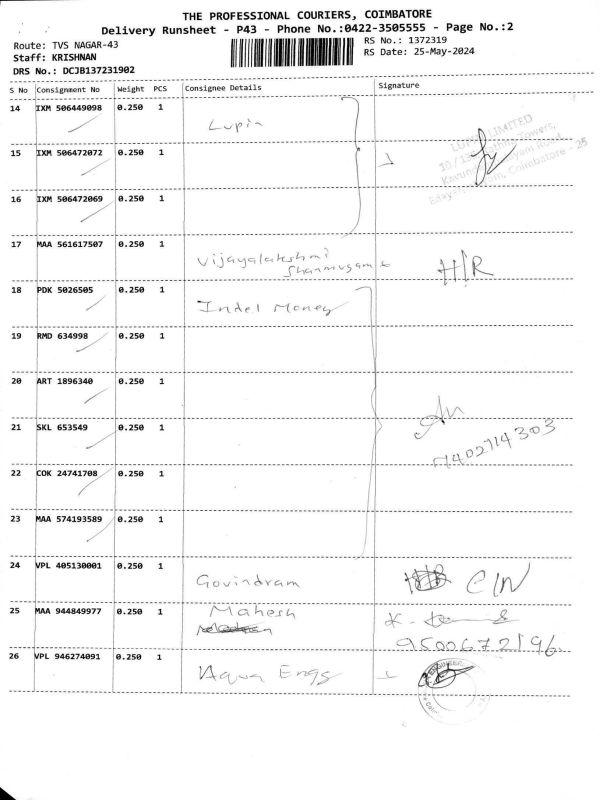 THE PROFESSIONAL COURIERS, COIMBATORE
Delivery Runsheet - P43 - Phone No.:0422-3505555 - Page No.:2
Route: TVS NAGAR-43
RS No.: 1372319
Staff: KRISHNAN
RS Date: 25-May-2024
DRS No.: DCJB137231902
S No Consignment No Weight PCS Consignee Details Signature
14 IXM 506449098 0.250 1 Lupin
LIMITED
Towers,
15 IXM 506472072 0.250 1
Coimbatore - 25
16 IXM 506472069 0.250 1
17 MAA 561617507 0.250 1 Vijayalakshmi
Shanmugam H/R
18 PDK 5026505 0.250 1 Indel Money
19 RMD 634998 0.250 1
20 ART 1896340 0.250 1
21 SKL 653549 0.250 1
7402714303
22 COK 24741708 0.250 1
23 MAA 574193589 0.250 1
24 VPL 405130001 0.250 1 Govindram
25 MAA 944849977 0.250 1 Mahesh
9500672196
26 VPL 946274091 0.250 1 Aqua Engg